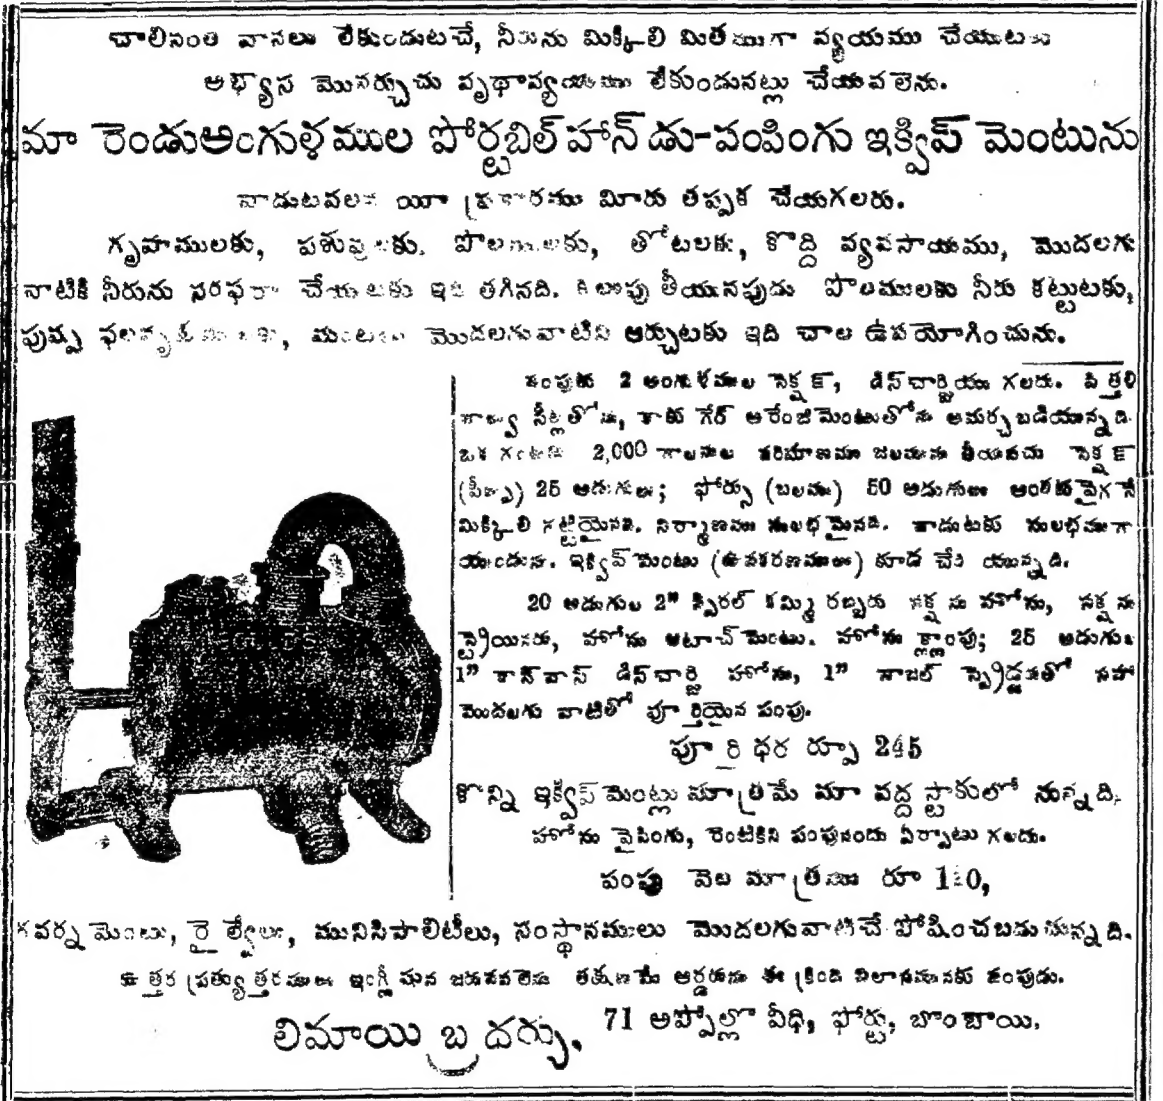 చాలినంత వానలు లేకుండుటచే, నీరును మిక్కిలి మితముగా వ్యయము చేయుటకు
అభ్యాస మొనర్చుచు వృథావ్యయము లేకుండునట్లు చేయవలెను.
మా రెండుఅంగుళముల పోర్టబిల్ హాన్‌డు-పంపింగు ఇక్విప్ మెంటును
వాడుటవలన యీ ప్రకారము మీరు తప్పక చేయగలరు.
గృహములకు, పశువులకు, పొలములకు, తోటలకు, కొద్ది వ్యవసాయము, మొదలగు
వాటికి నీరును సరఫరా చేయుటకు ఇది తగినది. కలుపు తీయునపుడు పొలములకు నీరు కట్టుటకు,
పుష్ప ఫలవృక్షములకు, మంటలు మొదలగువాటిని ఆర్చుటకు ఇది చాల ఉపయోగించును.
పంపుకు 2 అంగుళముల సెక్షన్, డిస్‌చార్జియు గలదు. పిత్తలి
వాల్వు సీట్లతోను, గేర్ ఆరేంజిమెంటుతోను అమర్చబడియున్నది.
ఒక గంటకు 2,000 గాలనుల పరిమాణము జలమును తీయవచ్చు సెక్షన్
(పీల్పు) 25 అడుగులు; ఫోర్సు (బలము) 50 అడుగులు అంతకుపైగనే
మిక్కిలి గట్టియైనది. నిర్మాణము సులభమైనది. వాడుటకు సులభముగా
యుండును. ఇక్విప్ మెంటు (ఉపకరణములు) కూడ చేరి యున్నది.
20 అడుగుల 2" స్పిరల్ కమ్మి రబ్బరు సక్షను హోసు, సక్షను
స్ట్రెయినరు, హోసు అటాచ్ మెంటు. హోసు క్లాంపు; 25 అడుగుల
1" కాన్‌వాస్ డిస్‌చార్జి హోసు, 1" నాజల్ స్ప్రెడ్డరుతో సహా
మొదలగు వాటితో పూర్తియైన పంపు.
పూర్తి ధర రూపా 245
కొన్ని ఇక్విప్ మెంట్లు మాత్రమే మా వద్ద స్టాకులో నున్నది.
హోసు పైపింగు, రెంటికిని పంపునందు ఏర్పాటు గలదు.
పంపు వెల మాత్రము రూ
గవర్నమెంటు, రైల్వేలు, మునిసిపాలిటీలు, సంస్థానములు మొదలగువాటిచే పోషించబడుచున్నది.
ఉత్తర ప్రత్యుత్తరములు ఇంగ్లీషున జరుపవలెను తక్షణమే ఆర్డరును ఈ క్రింది విలాసమునకు పంపుడు.
లిమాయి బ్రదర్సు, 71 అప్పోల్లా వీధి, ఫోర్టు, బొంబాయి.